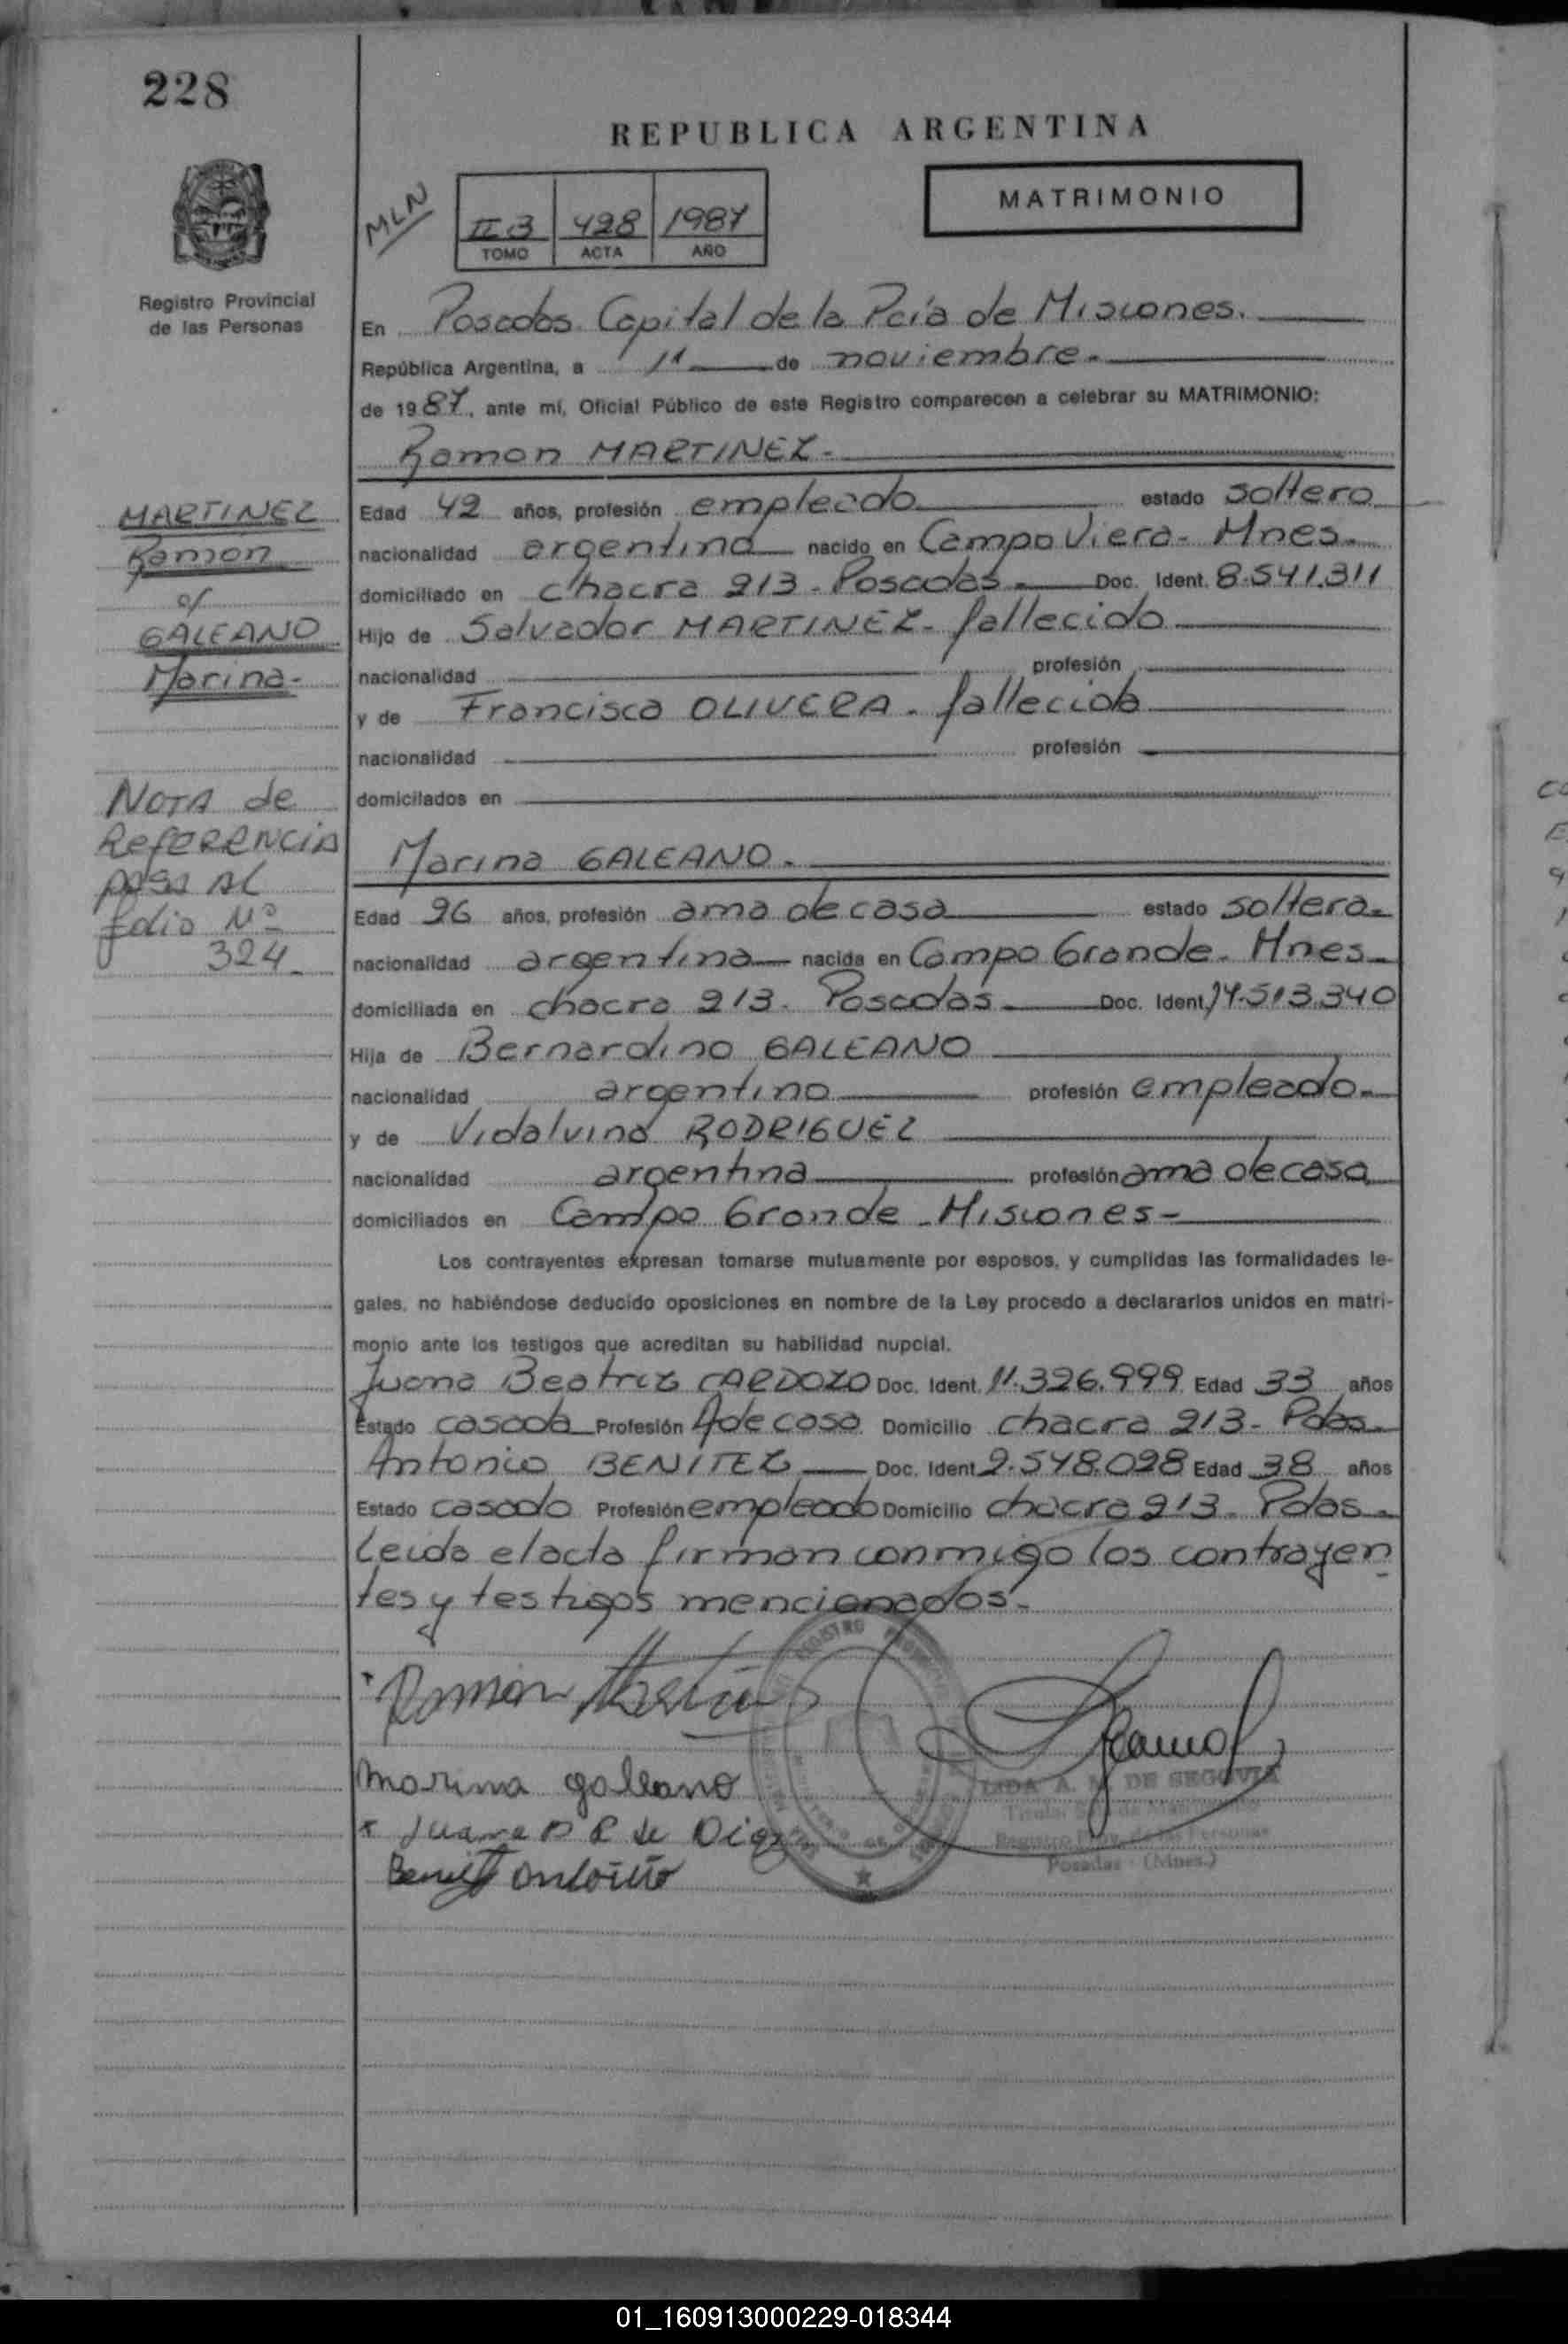 228
REPUBLICA ARGENTINA
MATRIMONIO
MLN
II-3 428 1987
TOMO ACTA AÑO
Registro Provincial
de las Personas
En Posadas Capital de la Pcia de Misiones.
República Argentina, a 11 de noviembre.
de 1987, ante mí, Oficial Público de este Registro comparecen a celebrar su MATRIMONIO:
Ramon MARTINEZ.
MARTINEZ
Ramón
c/
GALEANO
Marina-
Edad 42 años, profesión empleado estado soltero
nacionalidad argentina nacido en Campo Viera- Mnes.
domiciliado en chacra 213 - Posadas. Doc. Ident. 8.541.311
Hijo de Salvador MARTINEZ- fallecido
nacionalidad profesión
y de Francisca OLIVERA. fallecida
nacionalidad profesión
domicilados en
NOTA de
REFERENCIA
pasa AL
folio Nº
324.
Marina GALEANO.
Edad 26 años, profesión ama de casa estado soltera.
nacionalidad argentina nacida en Campo Grande. Mnes.
domiciliada en chacra 213. Posadas Doc. Ident. 14.513.340
Hija de Bernardino GALEANO
nacionalidad argentino profesión empleado.
y de Vidalvina RODRIGUEZ
nacionalidad argentina profesión ama de casa
domiciliados en Campo Grande - Misiones-
Los contrayentes expresan tomarse mutuamente por esposos, y cumplidas las formalidades le-
gales, no habiéndose deducido oposiciones en nombre de la Ley procedo a declararlos unidos en matri-
monio ante los testigos que acreditan su habilidad nupcial.
Juana Beatriz CARDOZO Doc. Ident. 11.326.999 Edad 33 años
Estado casada Profesión A de casa Domicilio chacra 213- Pdas.
Antonio BENITEZ Doc. Ident. 2.548.098 Edad 38 años
Estado casado Profesión empleado Domicilio chacra 213. Pdas.
Leida el acta firman conmigo los contrayen
tes y testigos mencionados.
Ramon Martinez
marina galeano
Juana
Benitez Antonio
REGISTRO
LIDA A. M. DE SEGOVIA
Registro Prov. de las Personas
Posadas - (Mnes.)
01_160913000229-018344